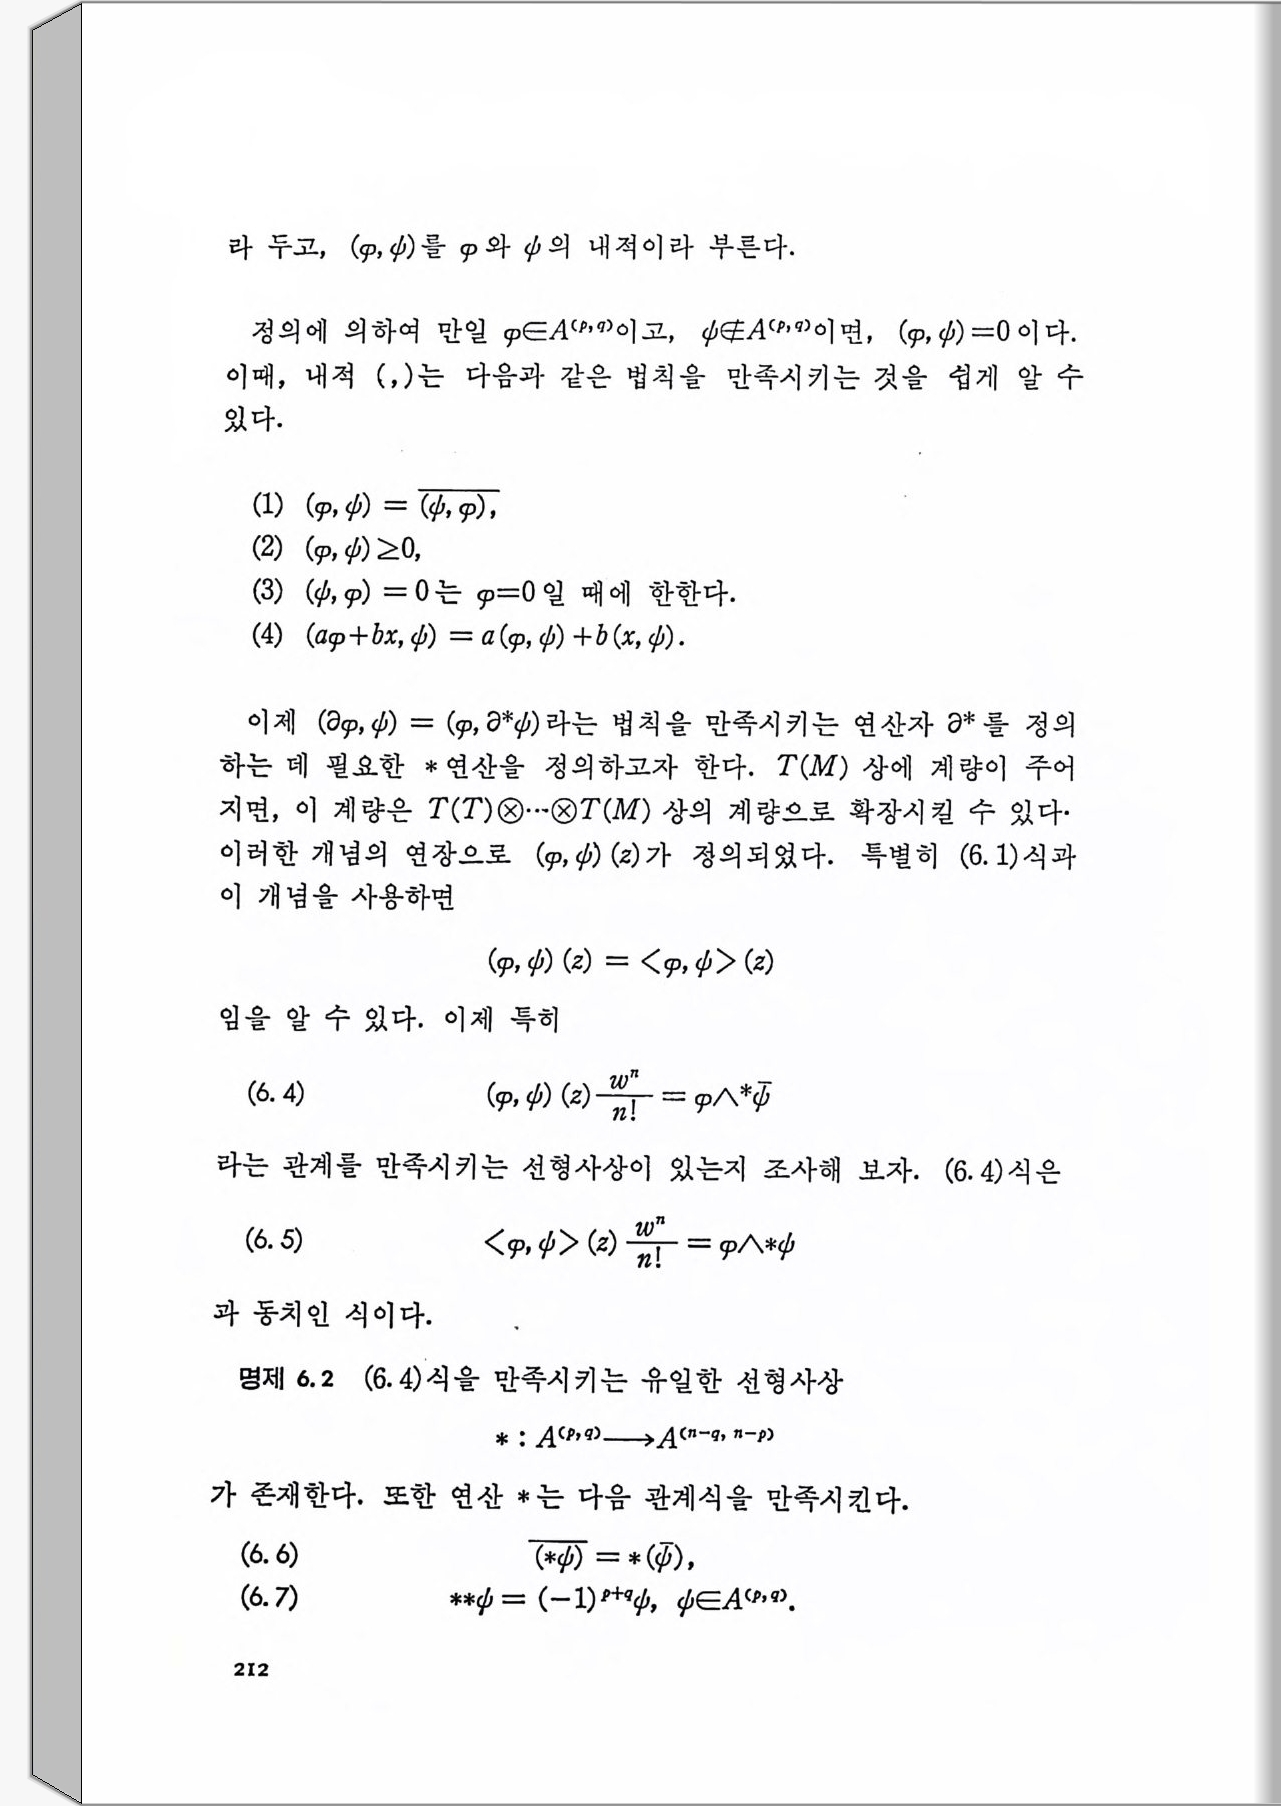 라 두고, (φ, ψ)를 φ와 ψ의 내적이라 부른다.
정의에 의하여 만일 φ∈A⁽ᵖ,𐞥⁾이고, ψ∉A⁽ᵖ,𐞥⁾이면, (φ, ψ)=0이다.
이때, 내적 (,)는 다음과 같은 법칙을 만족시키는 것을 쉽게 알 수
있다.
(1) (φ, ψ) = \overline{(ψ, φ)},
(2) (φ, ψ)≥0,
(3) (ψ, φ) = 0는 φ=0일 때에 한한다.
(4) (aφ+bx, ψ) = a(φ, ψ)+b(x, ψ).
이제 (∂φ, ψ) = (φ, ∂*ψ)라는 법칙을 만족시키는 연산자 ∂*를 정의
하는 데 필요한 *연산을 정의하고자 한다. T(M) 상에 계량이 주어
지면, 이 계량은 T(T)⊗···⊗T(M) 상의 계량으로 확장시킬 수 있다.
이러한 개념의 연장으로 (φ, ψ)(z)가 정의되었다. 특별히 (6.1)식과
이 개념을 사용하면
(φ, ψ)(z) = <φ, ψ>(z)
임을 알 수 있다. 이제 특히
(6.4) (φ, ψ)(z) \frac{w^n}{n!} = φ∧*\bar{ψ}
라는 관계를 만족시키는 선형사상이 있는지 조사해 보자. (6.4)식은
(6.5) <φ, ψ>(z) \frac{w^n}{n!} = φ∧*ψ
과 동치인 식이다.
명제 6.2 (6.4)식을 만족시키는 유일한 선형사상
* : A^{(p,q)}⟶A^{(n-q, n-p)}
가 존재한다. 또한 연산 *는 다음 관계식을 만족시킨다.
(6.6) \overline{(*ψ)} = *(\bar{ψ}),
(6.7) **ψ = (-1)^{p+q}ψ, ψ∈A^{(p,q)}.
212